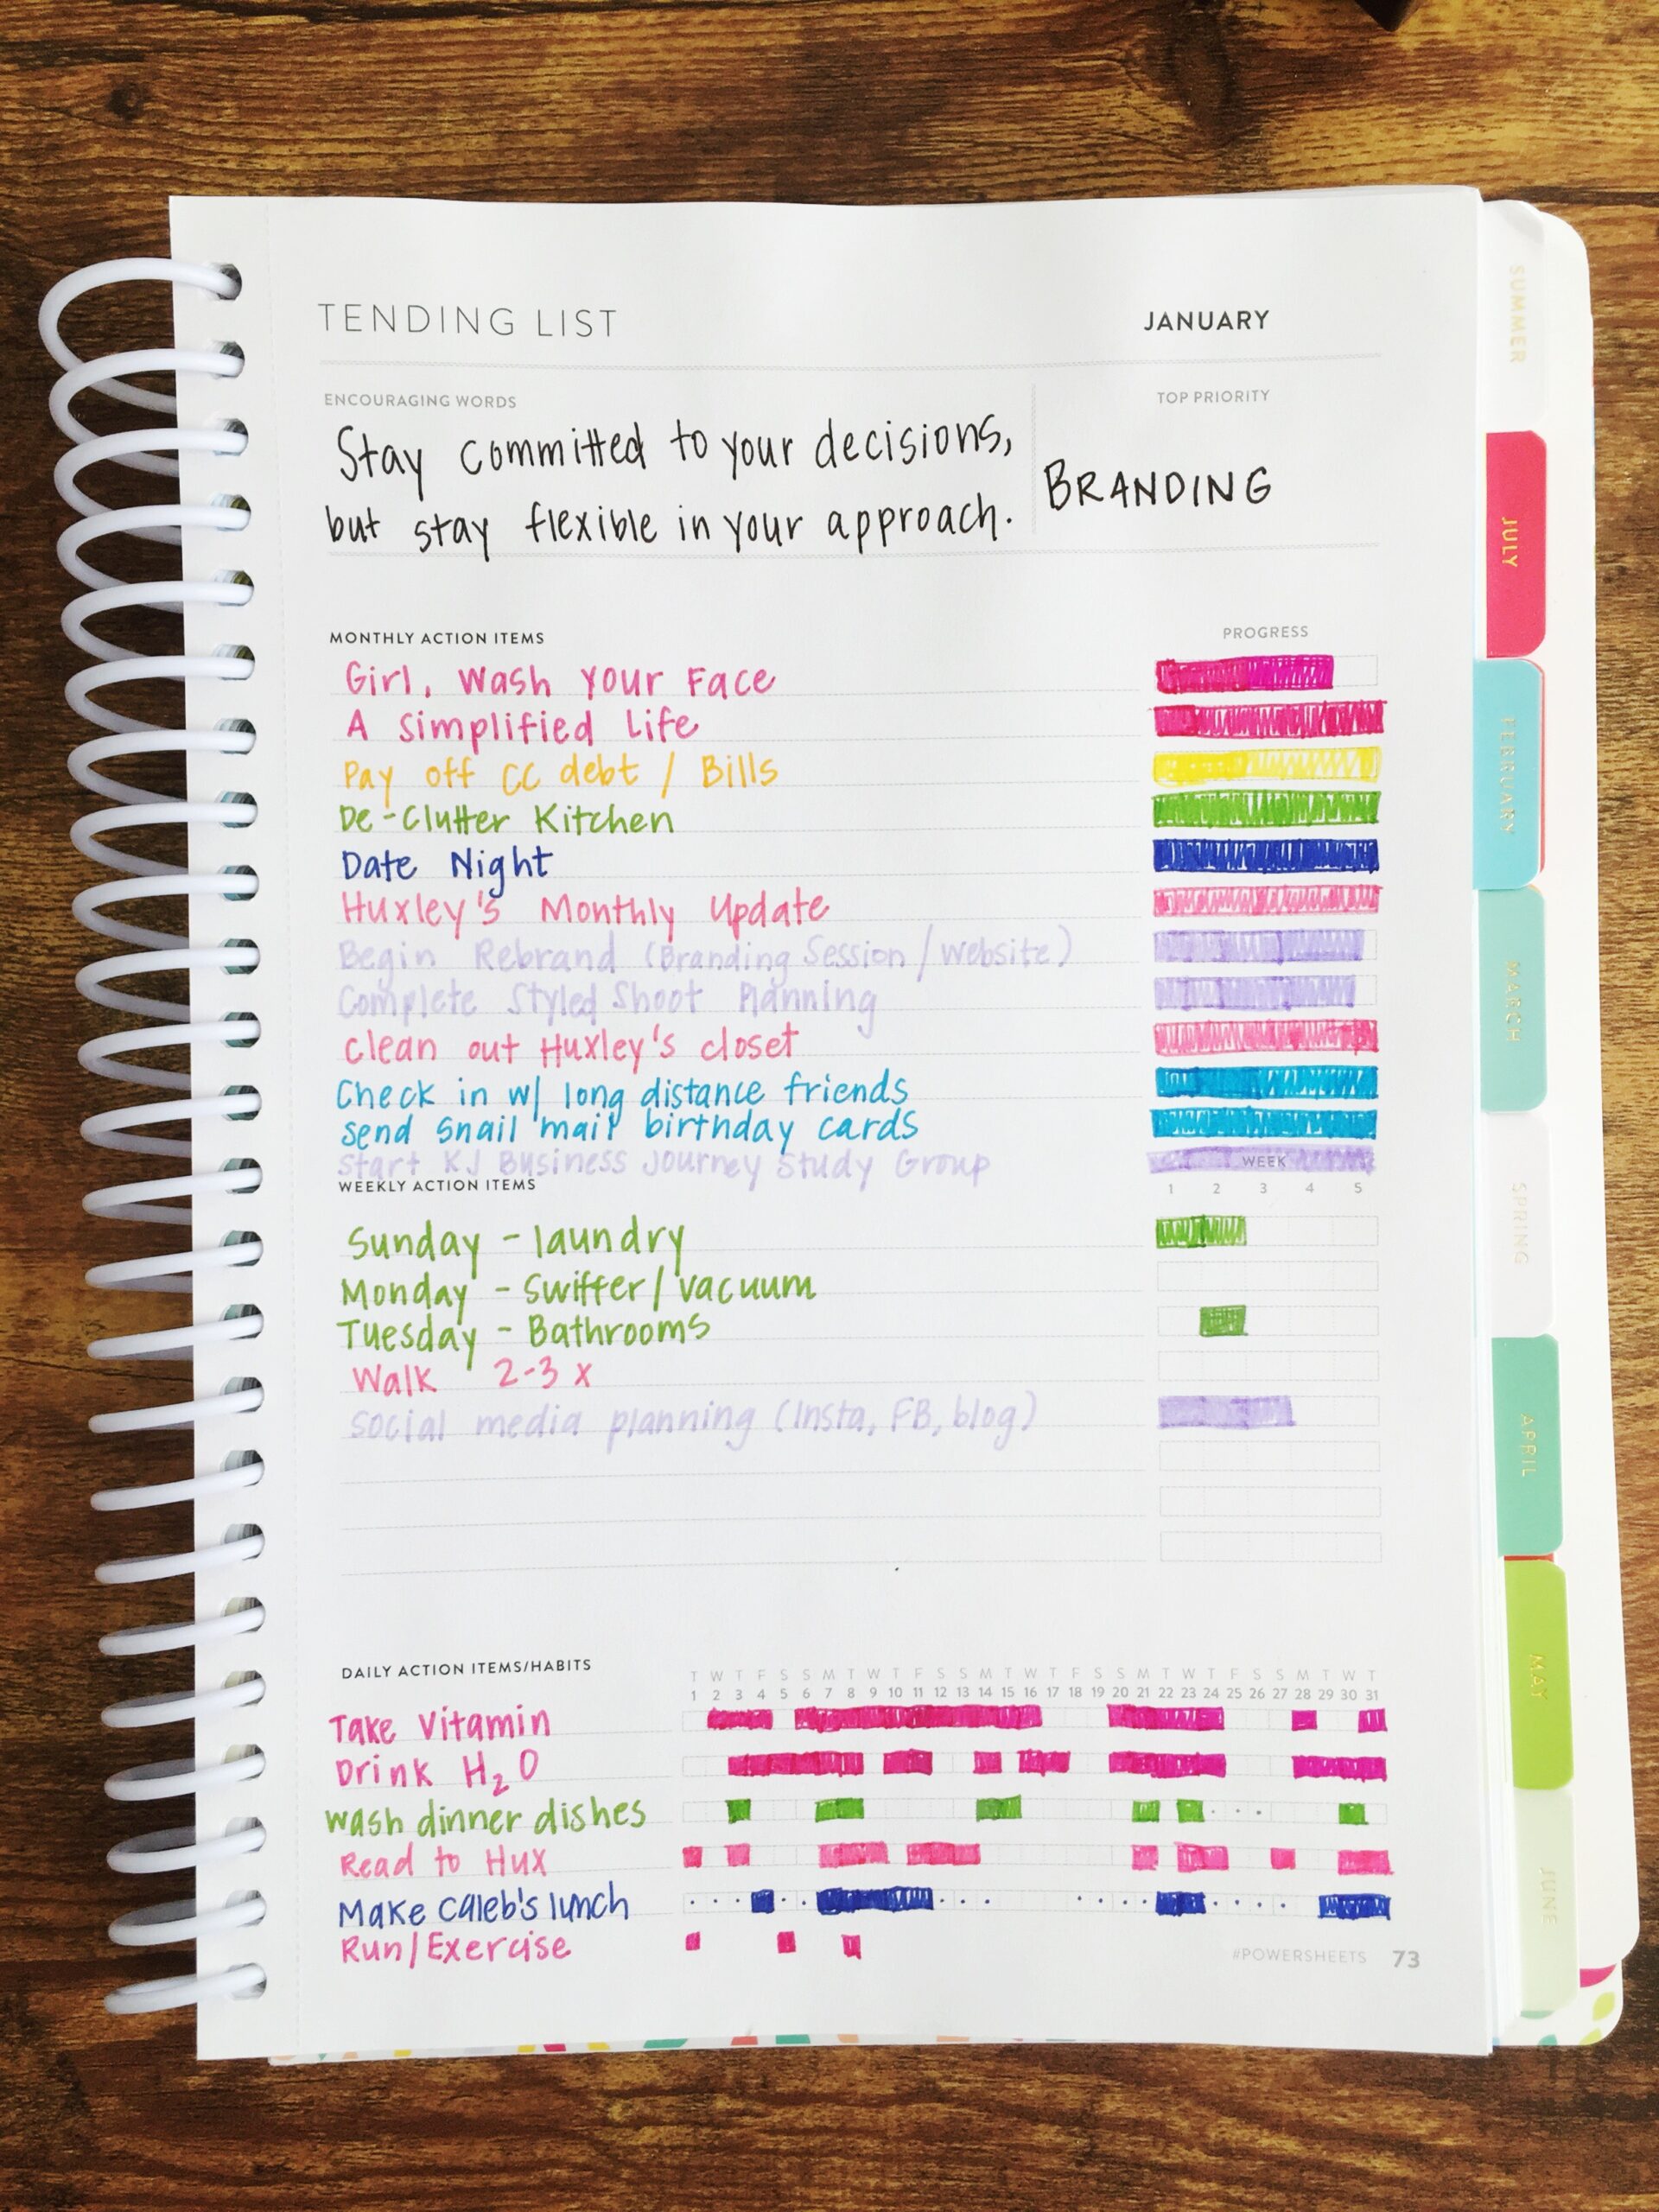 TENDING LIST
JANUARY
ENCOURAGING WORDS
TOP PRIORITY
Stay committed to your decisions,
but stay flexible in your approach.
BRANDING
MONTHLY ACTION ITEMS
PROGRESS
Girl, Wash Your Face
A Simplified Life
Pay off CC debt / Bills
De-Clutter Kitchen
Date Night
Huxley's Monthly Update
Begin Rebrand (Branding Session / Website)
Complete Styled Shoot Planning
Clean out Huxley's closet
Check in w/ long distance friends
Send Snail mail birthday cards
Start KJ Business Journey Study Group
WEEKLY ACTION ITEMS
WEEK
1 2 3 4 5
Sunday - laundry
Monday - Swiffer / Vacuum
Tuesday - Bathrooms
Walk 2-3 x
Social media planning (Insta, FB, blog)
DAILY ACTION ITEMS/HABITS
T W T F S S M T W T F S S M T W T F S S M T W T F S S M T W T
1 2 3 4 5 6 7 8 9 10 11 12 13 14 15 16 17 18 19 20 21 22 23 24 25 26 27 28 29 30 31
Take Vitamin
Drink H₂O
Wash dinner dishes
Read to Hux
Make Caleb's lunch
Run/Exercise
#POWERSHEETS 73
SUMMER
JULY
FEBRUARY
MARCH
SPRING
APRIL
MAY
JUNE